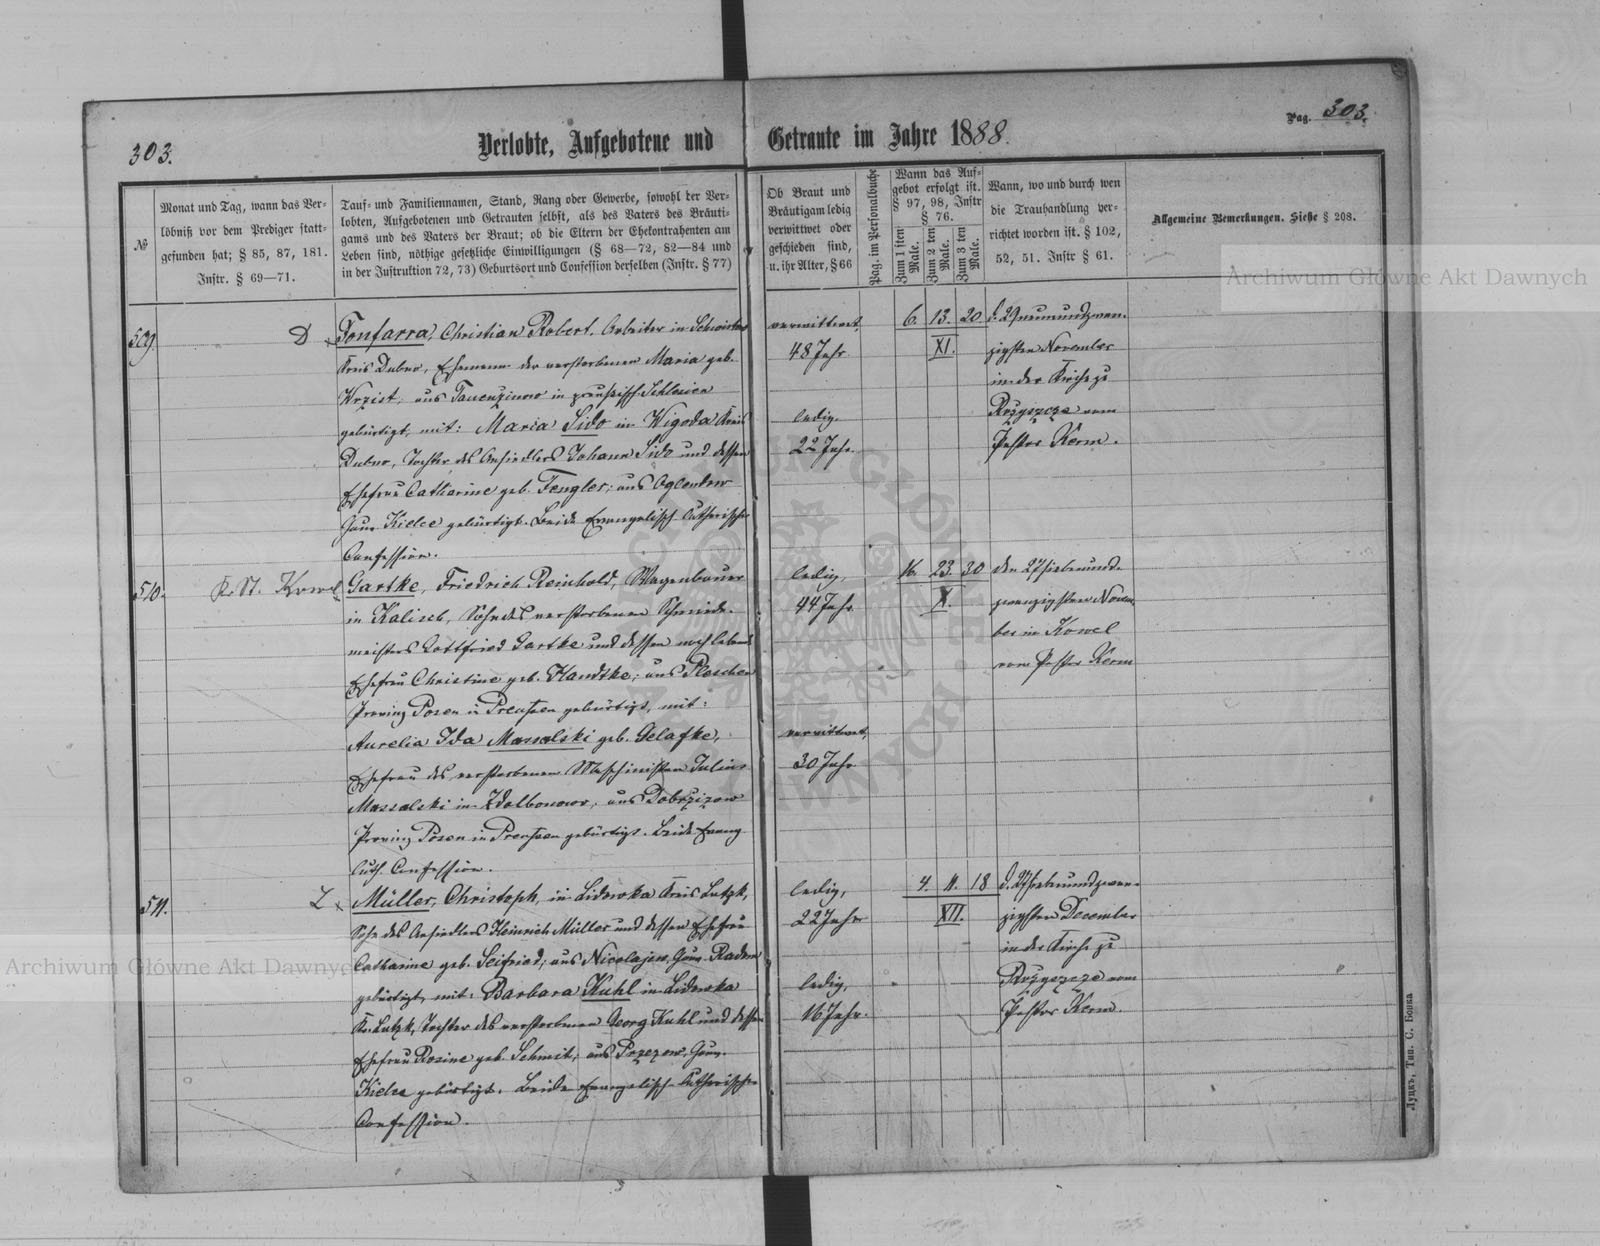 303.
Verlobte, Aufgebotene und Getraute im Jahre 1888.
Pag. 303.
№
Monat und Tag, wann das Ver-
löbniß vor dem Prediger statt-
gefunden hat; § 85, 87, 181.
Instr. § 69—71.
Tauf- und Familiennamen, Stand, Rang oder Gewerbe, sowohl der Ver-
lobten, Aufgebotenen und Getrauten selbst, als des Vaters des Bräuti-
gams und des Vaters der Braut; ob die Eltern der Ehekontrahenten am
Leben sind, nöthige gesetzliche Einwilligungen (§ 68—72, 82—84 und
in der Instruktion 72, 73) Geburtsort und Confession derselben (Instr. § 77)
Ob Braut und
Bräutigam ledig
verwittwet oder
geschieden sind,
u. ihr Alter, § 66
Pag. im Personalbuche
Wann das Auf-
gebot erfolgt ist.
§ 97, 98, Instr
§ 76.
Zum 1 sten
Male.
Zum 2 ten
Male.
Zum 3 ten
Male.
Wann, wo und durch wen
die Trauhandlung ver-
richtet worden ist. § 102,
52, 51. Instr § 61.
Allgemeine Bemerkungen. Siehe § 208.
509.
D
Fonfarra, Christian Robert. Arbeiter in
Kreis Dubno, Ehemann der verstorbenen Maria geb.
Krzist, aus in preußisch Schlesien
gebürtigt, mit: Maria Sido in Wigoda Kreis
Dubno, Tochter des Ansiedlers Johann Sido und dessen
Ehefrau Catharine geb. Fengler; aus
Gouv Kielce gebürtigt. Beide Evangelisch Lutherischer
Confession.
verwittwet,
48 Jahr
ledig.
22 Jahr.
6. 13. 20.
XI.
d. 29 neunundzwan-
zigsten November
in der Kirche zu
Rozyszcze vom
Pastor Kerm.
510.
P. St. Kowel
Gartke, Friedrich Reinhold, Wagenbauer
in Kalisch, Sohn des verstorbenen Schmiede-
meisters Gottfried Gartke und dessen noch lebend
Ehefrau Christine geb. Handtke; aus Pleschen
Provinz Posen in Preußen gebürtigt, mit:
Aurelia Ida Massalski geb. Gelafke,
Ehefrau des verstorbenen Maschinisten Julius
Massalski in Zdolbonowo, aus
Provinz Posen in Preußen gebürtigt. Beide Evang
Luth. Confession.
ledig,
44 Jahr.
verwittwet,
30 Jahr
16. 23. 30
X.
den 27 siebenund-
zwanzigsten Novem-
ber in Kowel
vom Pastor Kerm
511.
Z
Müller, Christoph, in Lidowka Kreis Lutzk,
Sohn des Ansiedlers Heinrich Müller und dessen Ehefrau
Catharine geb. Seifried; aus Nicolajew, Gouv. Radom
gebürtigt, mit: Barbara Kuhl in Lidowka
Kr. Lutzk, Tochter des verstorbenen Georg Kuhl und dessen
Ehefrau Rosine geb. Schmit; aus Gouv.
Kielce gebürtigt. Beide Evangelisch Lutherischer
Confession.
ledig,
22 Jahr
ledig,
16 Jahr.
4. 11. 18
XII.
d. 27 siebenundzwan-
zigsten December
in der Kirche zu
Rozyszcze vom
Pastor Kerm.
Луцкъ, Тип. С. Бонка
Archiwum Główne Akt Dawnych
Archiwum Główne Akt Dawnych